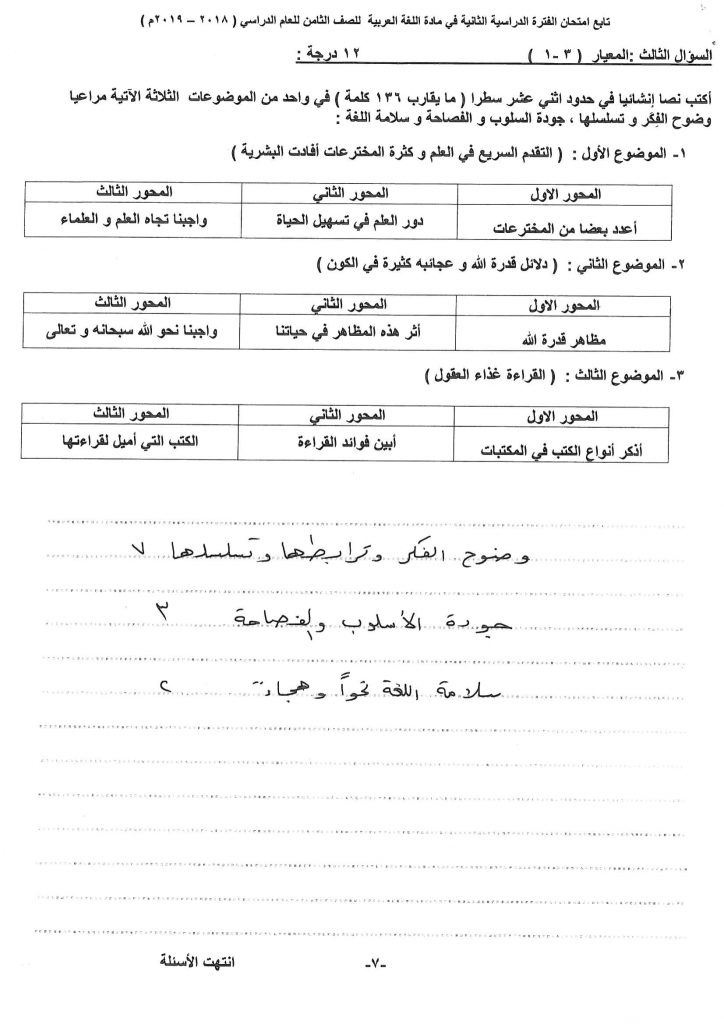 تابع امتحان الفترة الدراسية الثانية في مادة اللغة العربية للصف الثامن للعام الدراسي ( ٢٠١٨ – ٢٠١٩م )
السؤال الثالث :المعيار ( ٣ -١ ) ١٢ درجة :
أكتب نصا إنشائيا في حدود اثني عشر سطرا ( ما يقارب ١٣٦ كلمة ) في واحد من الموضوعات الثلاثة الآتية مراعيا
وضوح الفِكَر و تسلسلها ، جودة السلوب و الفصاحة و سلامة اللغة :
١- الموضوع الأول : ( التقدم السريع في العلم و كثرة المخترعات أفادت البشرية )
المحور الاول المحور الثاني المحور الثالث
أعدد بعضا من المخترعات دور العلم في تسهيل الحياة واجبنا تجاه العلم و العلماء
٢- الموضوع الثاني : ( دلائل قدرة الله و عجائبه كثيرة في الكون )
المحور الاول المحور الثاني المحور الثالث
مظاهر قدرة الله أثر هذه المظاهر في حياتنا واجبنا نحو الله سبحانه و تعالى
٣- الموضوع الثالث : ( القراءة غذاء العقول )
المحور الاول المحور الثاني المحور الثالث
أذكر أنواع الكتب في المكتبات أبين فوائد القراءة الكتب التي أميل لقراءتها
وضوح الفكر وترابطها وتسلسلها ٧
جودة الأسلوب والفصاحة ٣
سلامة اللغة نحواً وهجاءً ٢
-٧- انتهت الأسئلة